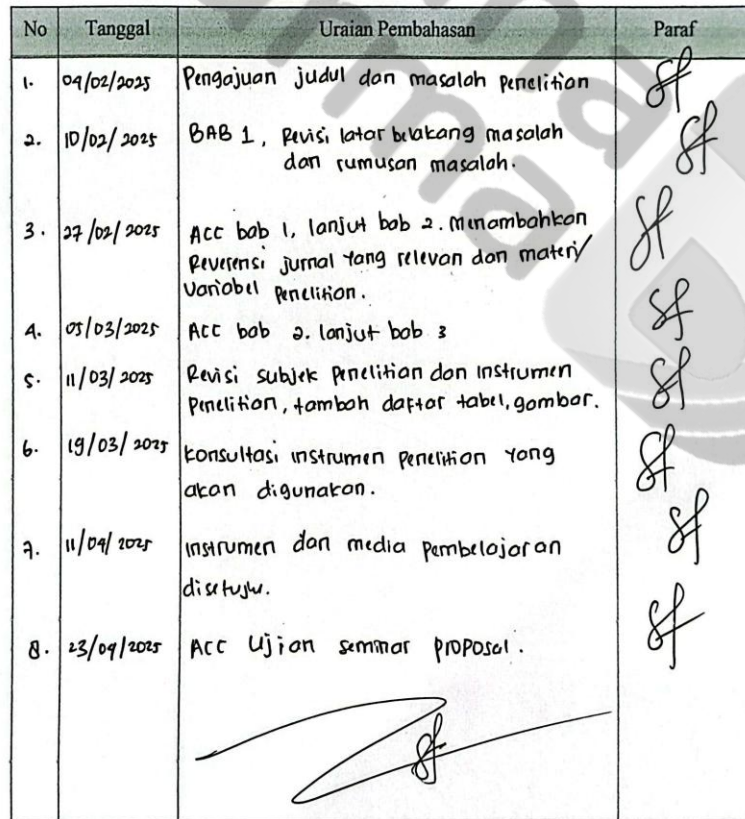 No Tanggal Uraian Pembahasan Paraf
1. 04/02/2025 Pengajuan judul dan masalah penelitian
2. 10/02/2025 BAB 1, Revisi latar belakang masalah
dan rumusan masalah.
3. 27/02/2025 Acc bab 1, lanjut bab 2. Menambahkan
Reverensi jurnal yang relevan dan materi/
variabel penelitian.
4. 05/03/2025 Acc bab 2. lanjut bab 3
5. 11/03/2025 Revisi subjek penelitian dan instrumen
penelitian, tambah daftar tabel, gambar.
6. 19/03/2025 konsultasi instrumen penelitian yang
akan digunakan.
7. 11/04/2025 instrumen dan media pembelajaran
disetujui.
8. 23/04/2025 Acc Ujian seminar proposal.